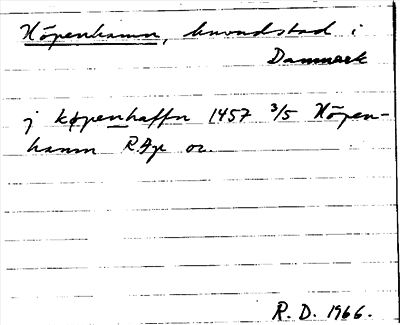 Köpenhamn, huvudstad i
Danmark
j køpenhaffn 1457 3/5 Köpen-
hamn R.Ap or.
R. D. 1966.